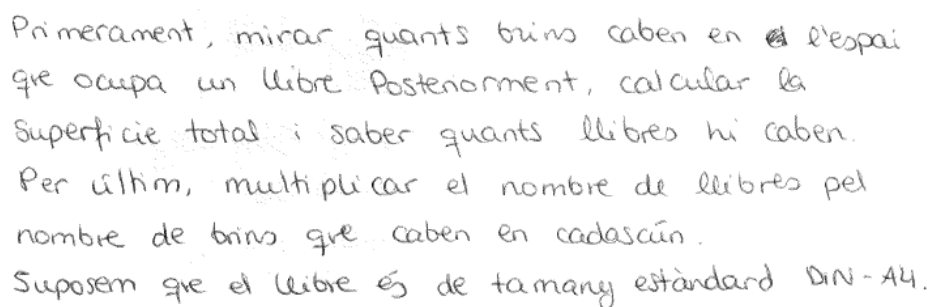 Primerament, mirar quants brins caben en l'espai
que ocupa un llibre Posteriorment, calcular la
superfície total i saber quants llibres hi caben.
Per últim, multiplicar el nombre de llibres pel
nombre de brins que caben en cadascún.
Suposem que el llibre és de tamany estàndard DIN-A4.